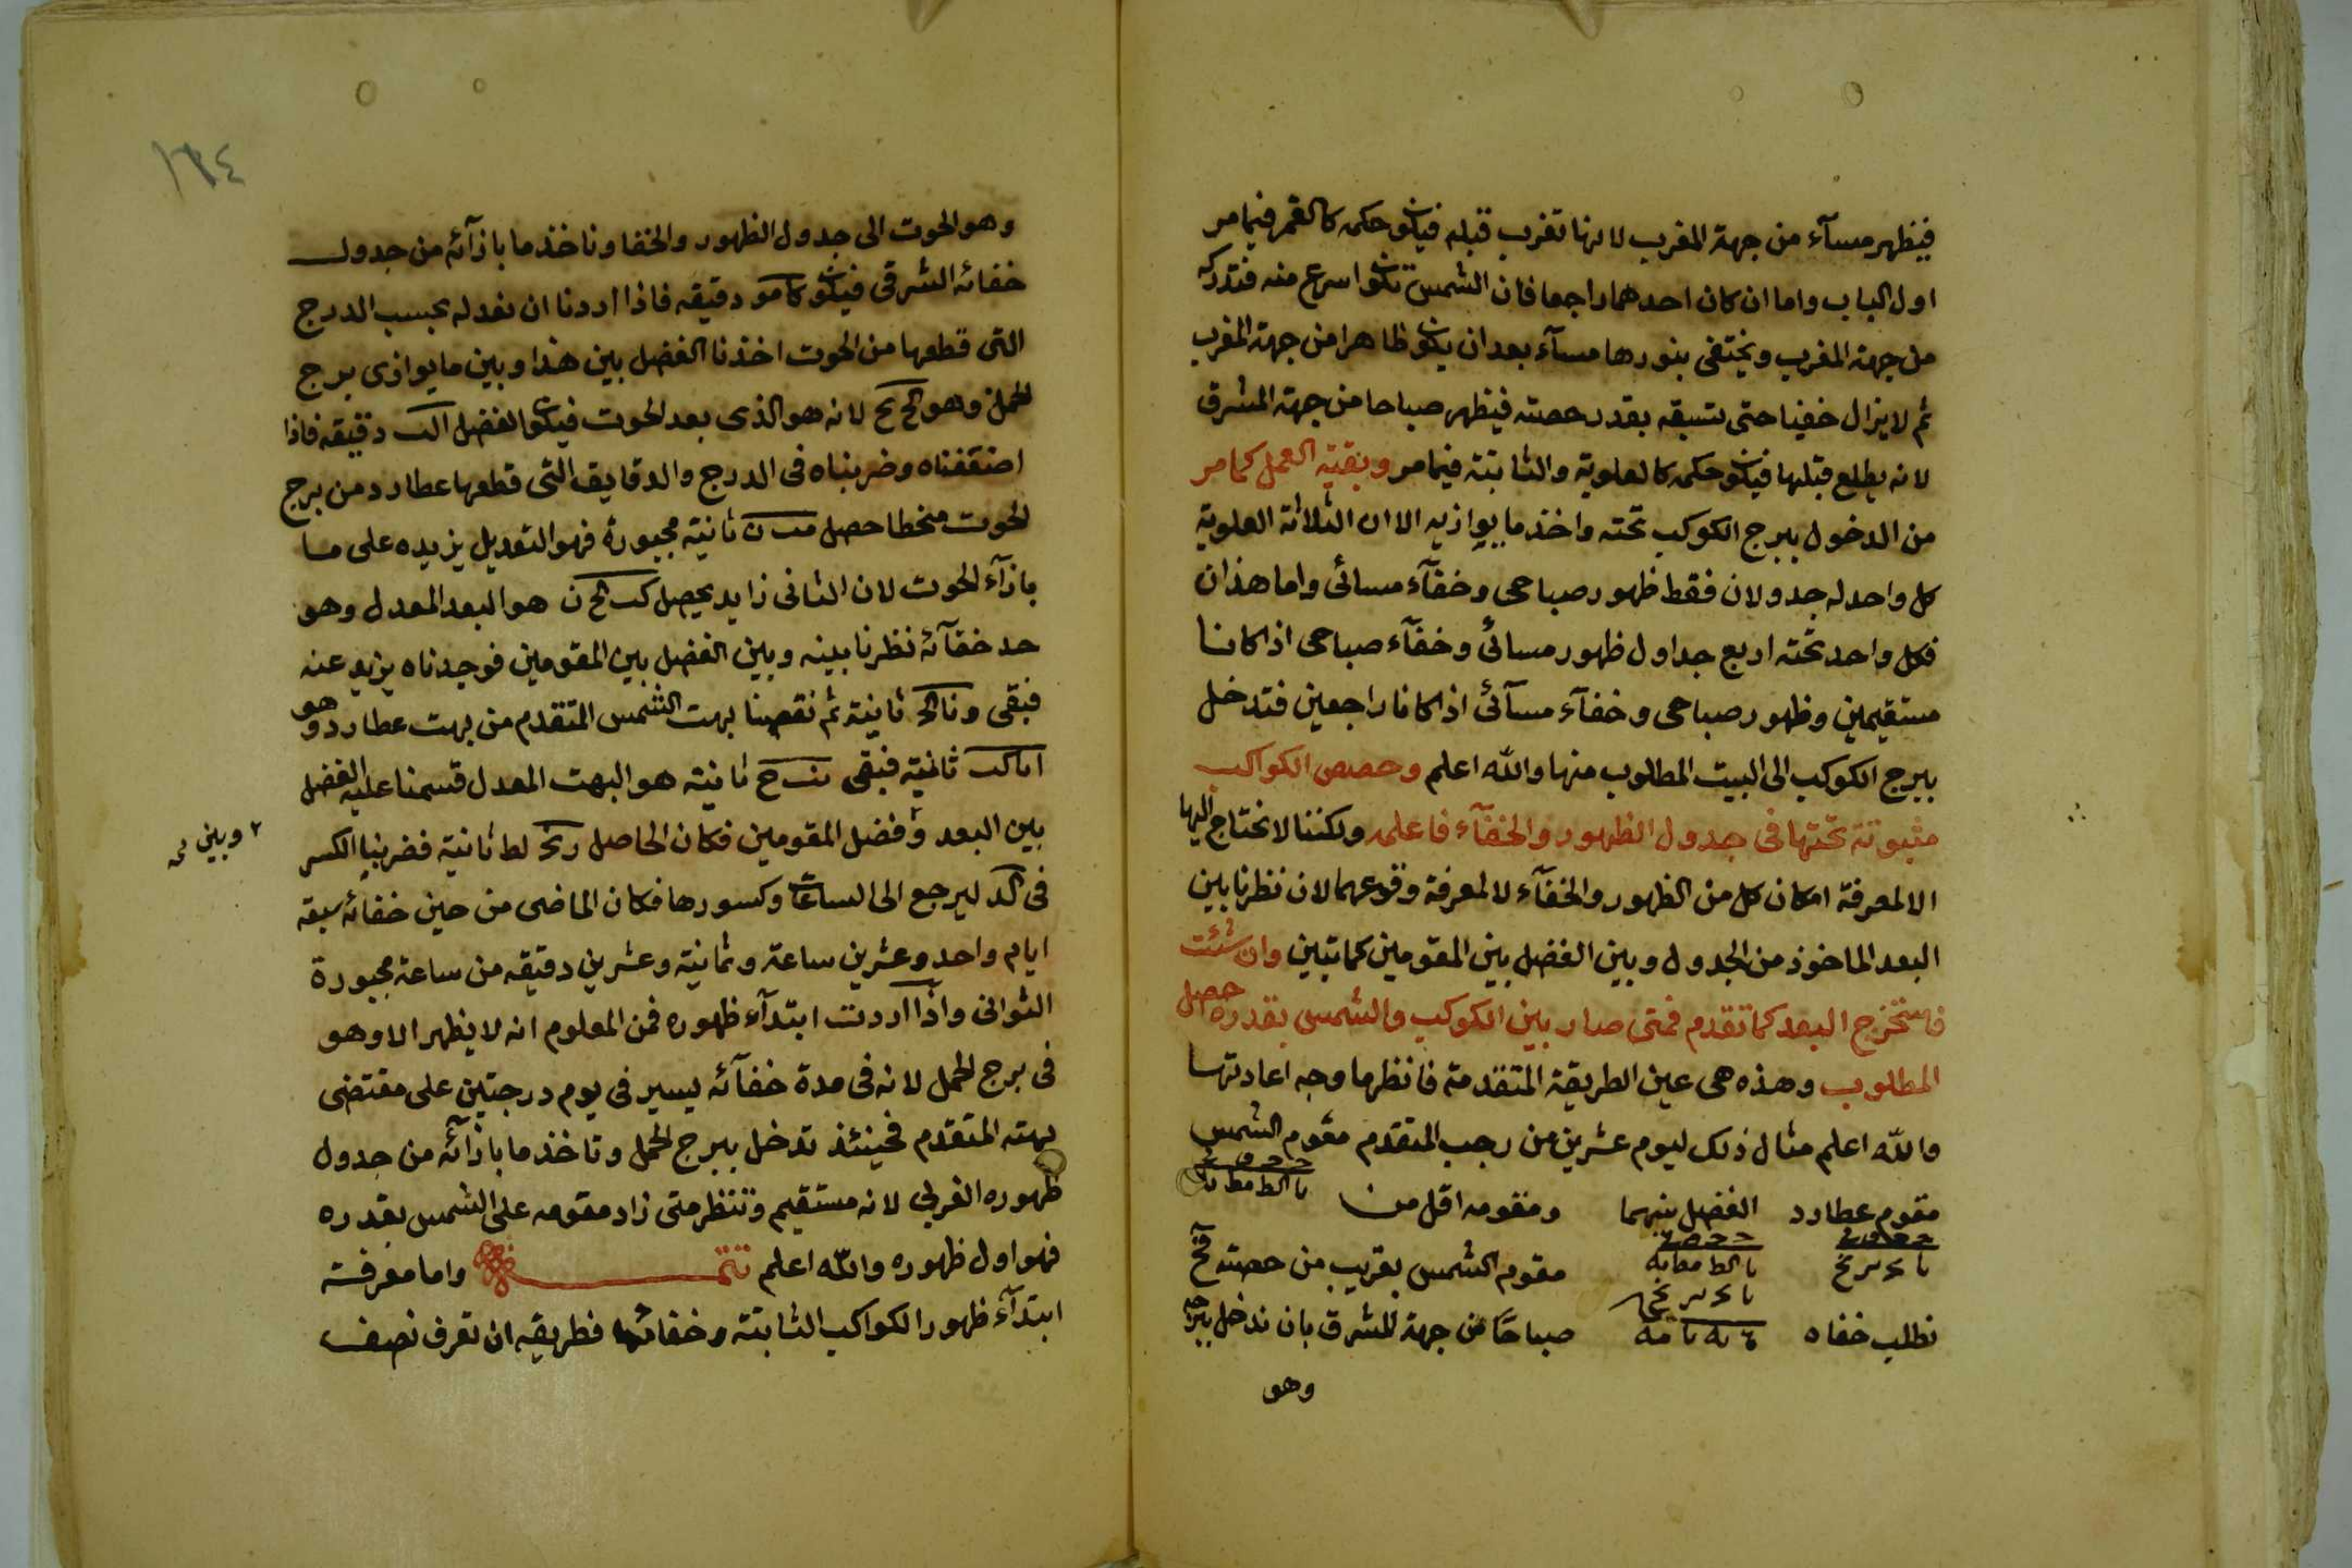 فيظهر مسآء من جهة المغرب لانها تغرب قبله فيكون حكمه كالقمر فيما مر
اول الباب واما ان كان احدهما راجعا فان الشمس تكون اسرع منه فتدركه
من جهة المغرب ويختفى بنورها مسآء بعد ان يكون ظاهرا من جهة المغرب
ثم لا يزال خفيا حتى تسبقه بقدر حصته فيظهر صباحا من جهة المشرق
لانه يطلع قبلها فيكون حكمه كالعلوية والثابتة فيما مر وبقية العمل كما مر
من الدخول ببرج الكوكب تحته واخذ ما يوازيه الا ان الثلاثة العلوية
كل واحد له جدولان فقط ظهور صباحى وخفآء مسائى واما هذان
فكل واحد تحته اربع جداول ظهور مسائى وخفآء صباحى اذا كانا
مستقيمين وظهور صباحى وخفآء مسآئى اذا كانا راجعين فتدخل
ببرج الكوكب الى البيت المطلوب منها والله اعلم وحصص الكواكب
مثبوتة تحتها فى جدول الظهور والخفآء فاعلمه ولكننا لا نحتاج اليها
الا لمعرفة امكان كل من الظهور والخفآء لا لمعرفة وقوعهما لان نظرنا بين
البعد الماخوذ من الجدول وبين الفضل بين المقومين كما تبين وان شئت
فاستخرج البعد كما تقدم فمتى صار بين الكوكب والشمس بقدره حصل
المطلوب وهذه هى عين الطريقة المتقدمة فانظر ما وجه اعادتها
والله اعلم مثال ذلك ليوم عشرين من رجب المتقدم مقوم الشمس
يا كط مط
مقوم عطارد الفضل بينهما ومقومه اقل من
يا كط مط يه
مقوم الشمس بقريب من حصته فح
نطلب خفاه صباحًا من جهة المشرق بان ندخل ببرجه
وهو
١٦٤
وهو الحوت الى جدول الظهور والخفا وناخذ ما بازآئه من جدول
خفائه الشرقى فيكون كا مو دقيقه فاذا اردنا ان نعدله بحسب الدرج
التى قطعها من الحوت اخذنا الفضل بين هذا وبين ما يوازى برج
الحمل وهو كج لح لانه هو الذى بعد الحوت فيكون الفضل ا دقيقه فاذا
اضعفناه وضربناه فى الدرج والدقايق التى قطعها عطارد من برج
الحوت منحطا حصل مب ن ثانية مجبورة فهو التعديل يزيده على ما
بازآء الحوت لان الثانى زايد يحصل كب كح ن هو البعد المعدل وهو
حد خفآئه نظرنا بينه وبين الفضل بين المقومين فوجدناه يزيد عنه
فبقى ثانية ثم نقصنا بهت الشمس المتقدم من بهت عطارد وهو
ثانية فبقى ثانية هو البهت المعدل قسمنا عليه الفضل
بين البعد وفضل المقومين فكان الحاصل لط ثانية فضربنا الكسر
وبين
فى كد ليرجع الى الساعات وكسورها فكان الماضى من حين خفائه سبعة
ايام واحد وعشرين ساعة وثمانية وعشرين دقيقه من ساعة مجبورة
الثوانى واذا اردت ابتدآء ظهوره فمن المعلوم انه لا يظهر الا وهو
فى برج الحمل لانه فى مدة خفآئه يسير فى يوم درجتين على مقتضى
بهته المتقدم فحينئذ تدخل ببرج الحمل وتاخذ ما بازآئه من جدول
ظهوره الغربى لانه مستقيم وتنتظر متى زاد مقومه على الشمس بقدره
فهو اول ظهوره والله اعلم تتمـــة واما معرفة
ابتدآء ظهور الكواكب الثابتة وخفائها فطريقه ان تعرف نصف